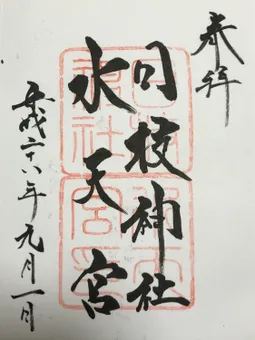 奉拝
日枝神社
水天宮
平成二十八年元月一日